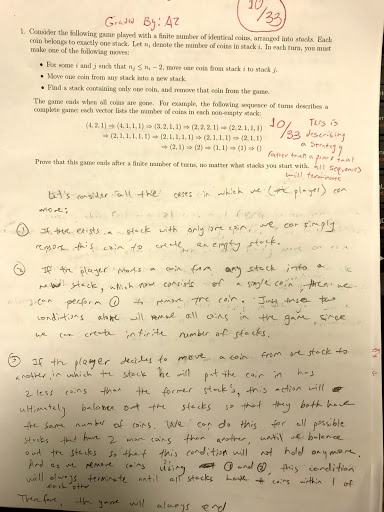 Graded By: AZ
10/33
1. Consider the following game played with a finite number of identical coins, arranged into stacks. Each
coin belongs to exactly one stack. Let nᵢ denote the number of coins in stack i. In each turn, you must
make one of the following moves:
• For some i and j such that nⱼ ≤ nᵢ − 2, move one coin from stack i to stack j.
• Move one coin from any stack into a new stack.
• Find a stack containing only one coin, and remove that coin from the game.
The game ends when all coins are gone. For example, the following sequence of turns describes a
complete game; each vector lists the number of coins in each non-empty stack:
(4, 2, 1) ⇒ (4, 1, 1, 1) ⇒ (3, 2, 1, 1) ⇒ (2, 2, 2, 1) ⇒ (2, 2, 1, 1, 1)
⇒ (2, 1, 1, 1, 1, 1) ⇒ (2, 1, 1, 1, 1) ⇒ (2, 1, 1, 1) ⇒ (2, 1, 1)
⇒ (2, 1) ⇒ (2) ⇒ (1, 1) ⇒ (1) ⇒ ()
10/33
This is
describing
a strategy
rather than a proof that
all sequences
will terminate
Prove that this game ends after a finite number of turns, no matter what stacks you start with.
Let's consider all the cases in which we (the player) can
move:
① If there exists a stack with only one coin, we can simply
remove this coin to create an empty stack.
② If the player moves a coin from any stack into a
new stack, which now consists of a single coin, then we
can perform ① to remove the coin. Just these two
conditions alone will remove all coins in the game since
we can create infinite number of stacks.
③ If the player decides to move a coin from one stack to
another, in which the stack he will put the coin in has
2 less coins than the former stack's, this action will
ultimately balance out the stacks so that they both have
the same number of coins. We can do this for all possible
stacks that have 2 more coins than another, until we balance
out the stacks so that this condition will not hold anymore.
And as we remove coins using ① and ②, this condition
will always terminate until all stacks have coins within 1 of
each other
Therefore, the game will always end